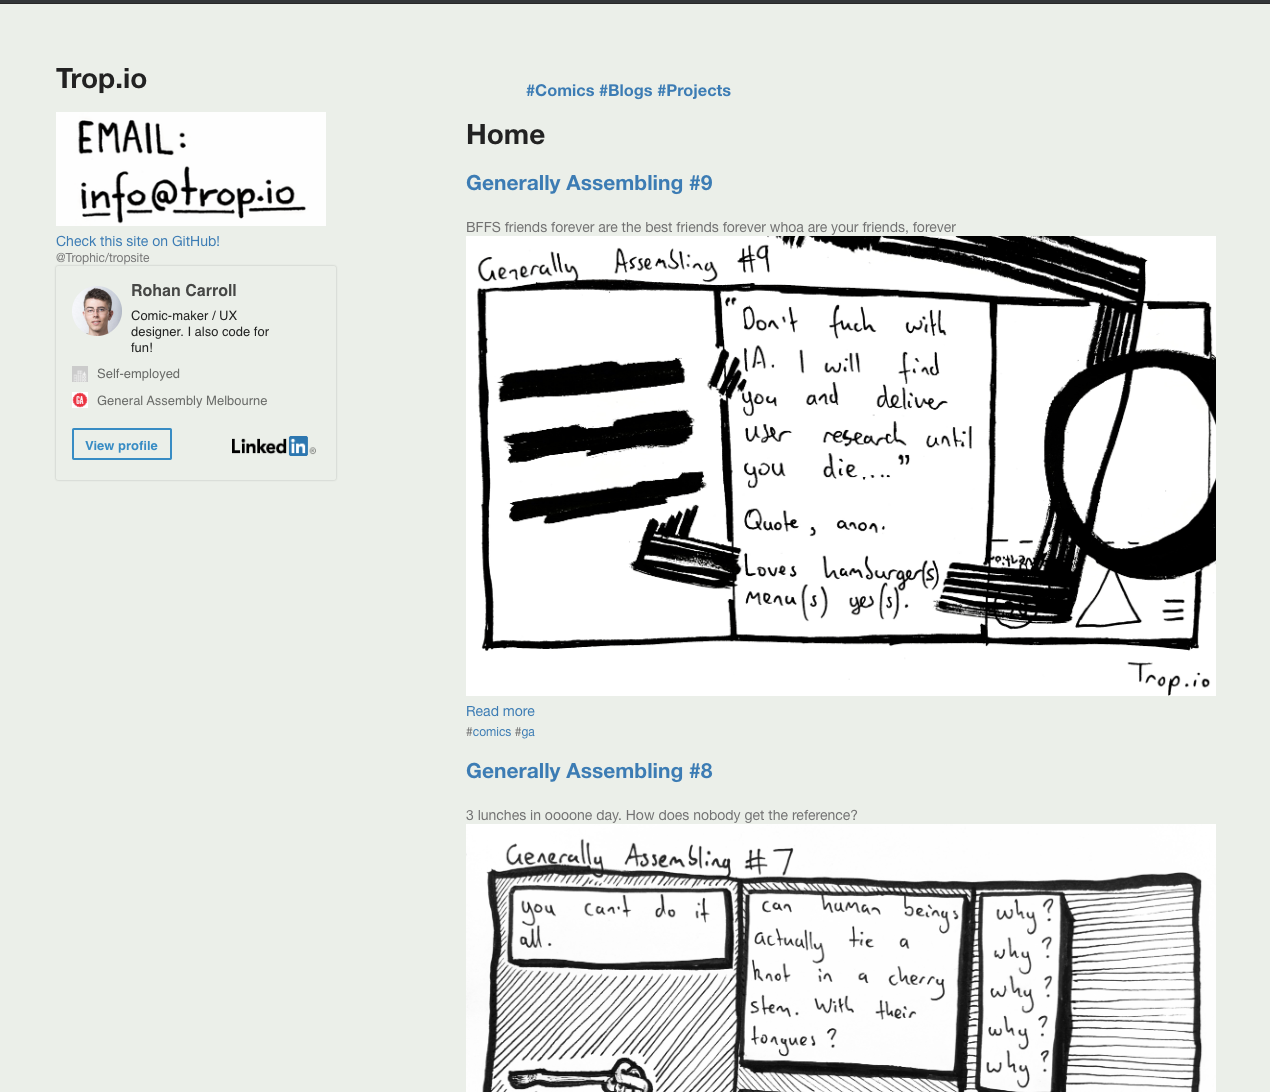 Trop.io
EMAIL:
info@trop.io
Check this site on GitHub!
@Trophic/tropsite
Rohan Carroll
Comic-maker / UX
designer. I also code for
fun!
Self-employed
GA
General Assembly Melbourne
View profile
Linked in ®
#Comics #Blogs #Projects
Home
Generally Assembling #9
BFFS friends forever are the best friends forever whoa are your friends, forever
Generally Assembling #9
"Don't fuch with
IA. I will find
you and deliver
user research until
you die...."
Quote, anon.
Loves hamburger(s)
menu(s) yes(s).
Trop.io
Read more
#comics #ga
Generally Assembling #8
3 lunches in oooone day. How does nobody get the reference?
Generally Assembling #7
you can't do it
all.
can human beings
actually tie a
knot in a cherry
stem. With their
tongues?
why?
why?
why?
why?
why?